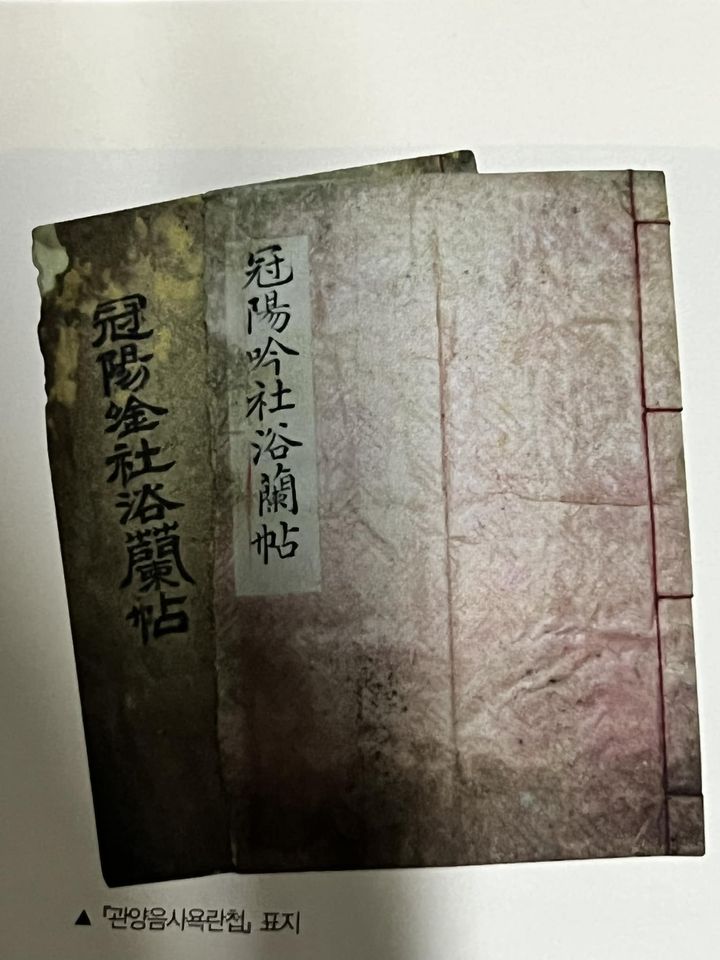 冠陽唫社浴蘭帖
冠陽吟社浴蘭帖
▲ 『관양음사욕란첩』 표지